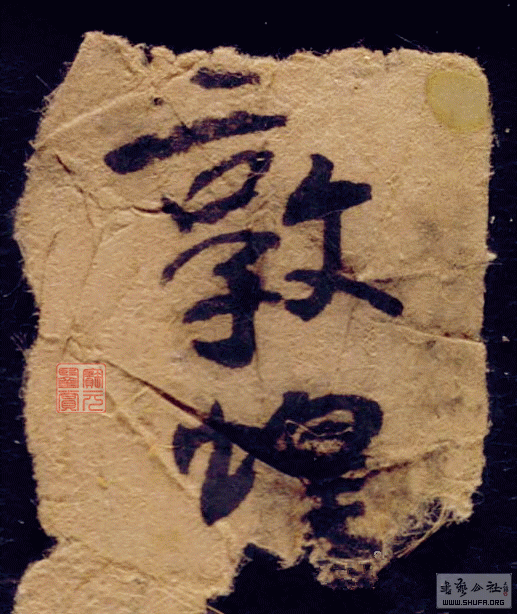 敦
煌
書藝公社
WWW.SHUFA.ORG